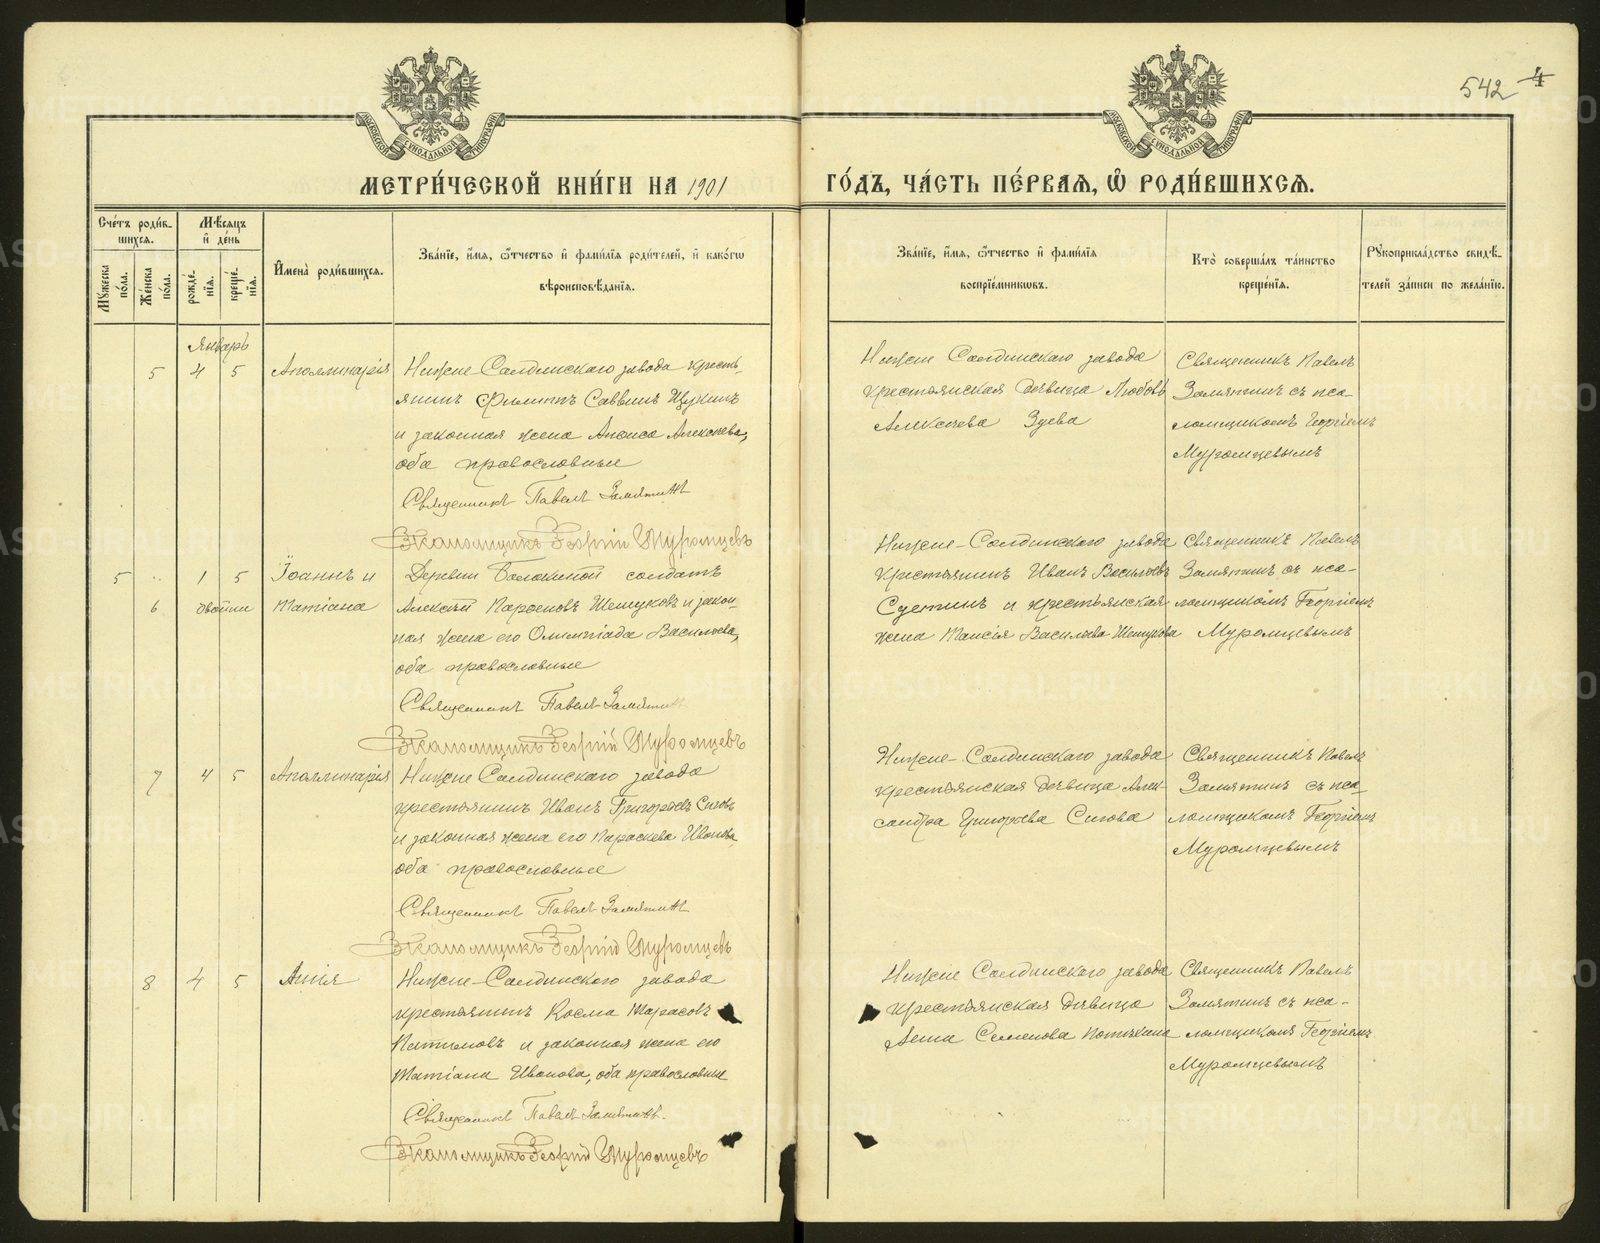 542 4
МОСКОВСКОЙ СУНОДАЛЬНОЙ ТИПОГРАФІИ
МОСКОВСКОЙ СУНОДАЛЬНОЙ ТИПОГРАФІИ
МЕТРИ́ЧЕСКОЙ КНИ́ГИ НА 1901
ГО́ДЪ, ЧА́СТЬ ПЕ́РВАЯ, Ѡ҆ РОДИ́ВШИХСЯ.
Сче́тъ роди́в-
шихся.
Мꙋ́жеска по́ла.
Же́нска по́ла.
Мѣ́сяцъ
и҆ де́нь
рожде́нїя.
креще́нїя.
И҆мена̀ роди́вшихся.
Зва́нїе, и҆́мя, ѻ҆́тчество и҆ фами́лїя роди́телей, и҆ како́гѡ
вѣроисповѣ́данїя.
Зва́нїе, и҆́мя, ѻ҆́тчество и҆ фами́лїя
воспрїе́мниковъ.
Кто̀ соверша́лъ та́инство
креще́нїя.
Рꙋкоприкла́дство свидѣ́-
телей за́писи по жела́нїю.
Январь
5 4 5 Аполлинарія
Нижне Салдинскаго завода кресть-
янинъ Филиппъ Саввинъ Щукинъ
и законная жена Анфиса Алексѣева,
оба православные
Священникъ Павелъ Замятинъ
Псаломщикъ Георгій Муромцевъ
Нижне Салдинскаго завода
крестьянская дѣвица Любовь
Алексѣева Зуева
Священникъ Павелъ
Замятинъ съ пса-
ломщикомъ Георгіемъ
Муромцевымъ
5 " 1 5 Іоаннъ и
6 двойни Татіана
Деревни солдатъ
Алексѣй Парѳеновъ Шешуковъ и закон-
ная жена его Олимпіада Васильева,
оба православные
Священникъ Павелъ Замятинъ
Псаломщикъ Георгій Муромцевъ
Нижне-Салдинскаго завода
крестьянинъ Иванъ Васильевъ
и крестьянская
жена Таисія Васильева Шешукова
Священникъ Павелъ
Замятинъ съ пса-
ломщикомъ Георгіемъ
Муромцевымъ
7 4 5 Аполлинарія
Нижне Салдинскаго завода
крестьянинъ Иванъ Григорьевъ Сиговъ
и законная жена его Параскева Иванова,
оба православные
Священникъ Павелъ Замятинъ
Псаломщикъ Георгій Муромцевъ
Нижне-Салдинскаго завода
крестьянская дѣвица Алек-
сандра Григорьева Сигова
Священникъ Павелъ
Замятинъ съ пса-
ломщикомъ Георгіемъ
Муромцевымъ
8 4 5 Анна
Нижне-Салдинскаго завода
крестьянинъ Косма Тарасовъ
и законная жена его
Татіана Иванова, оба православные
Священникъ Павелъ Замятинъ.
Псаломщикъ Георгій Муромцевъ
Нижне Салдинскаго завода
крестьянская дѣвица
Анна Семенова
Священникъ Павелъ
Замятинъ съ пса-
ломщикомъ Георгіемъ
Муромцевымъ
METRIKI.GASO-URAL.RU